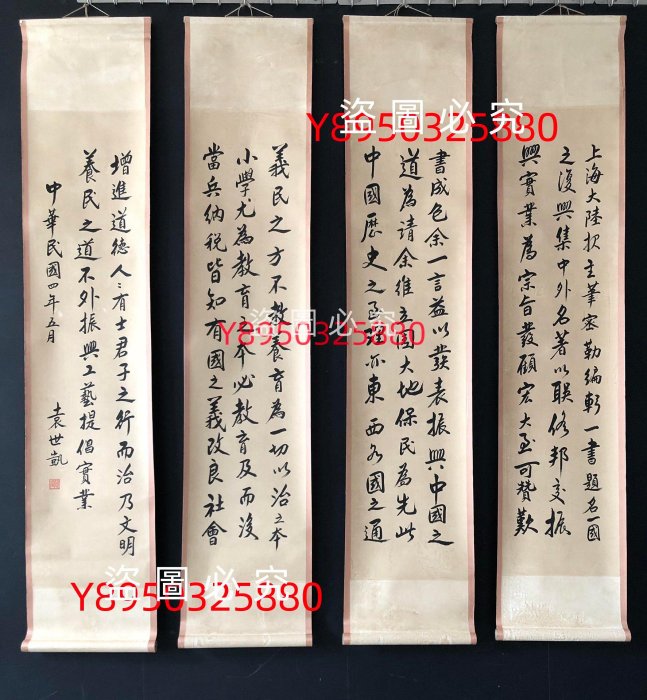 上海大陸報主筆密勒編輯一書題名一國
之復興集中外名著以聯傺邦交振
興實業為宗旨發願宏大至可贊歎
書成乞余一言益以發表振興中國之
道為請余維立國大地保民為先此
中國歷史之至理亦東西各國之通
義民之方不外教養育為一切以治之本
小學尤為教育之本必教育及而後
當兵納稅皆知有國之義改良社會
增進道德人〻有士君子之行而治乃文明
養民之道不外振興工藝提倡實業
中華民國四年五月
袁世凱
盜圖必究
Y8950325880
盜圖必究
Y8950325880
盜圖必究
Y8950325880